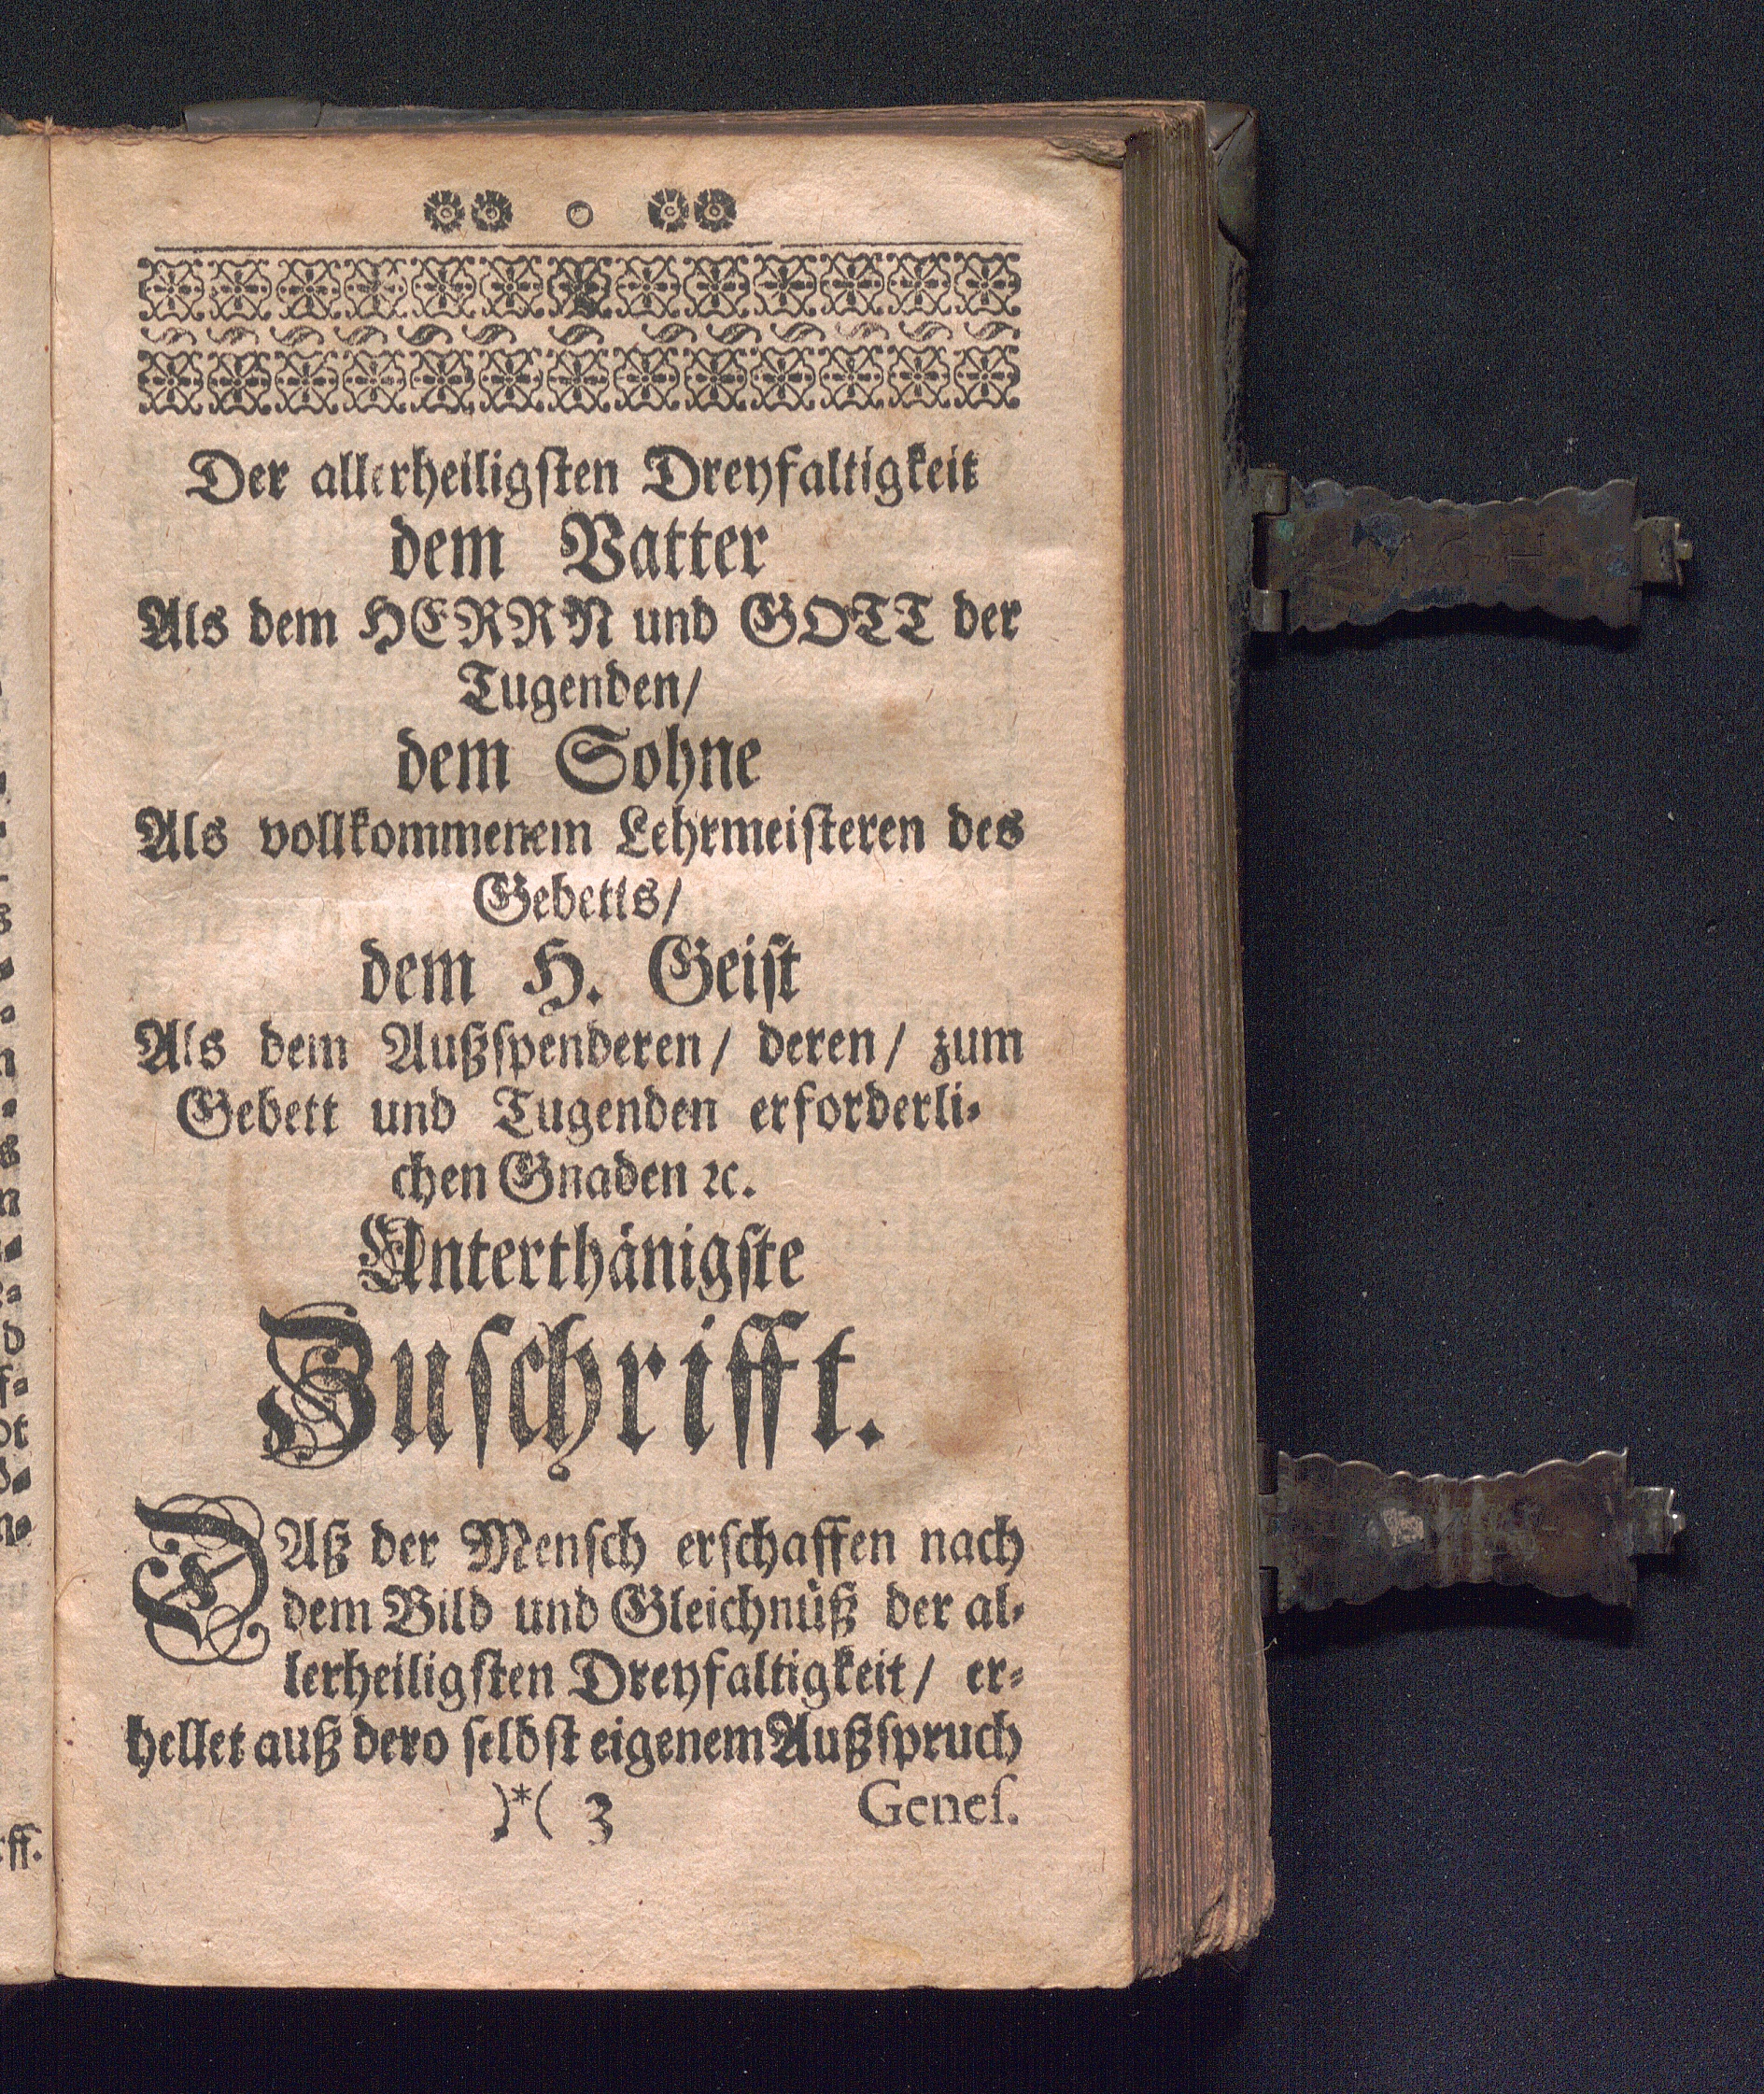 Der allerheiligſten Dreyfaltigkeit
dem Vatter
Als dem HERRN und GOTT der
Tugenden/
dem Sohne
Als vollkommenem Lehrmeiſteren des
Gebetts/
dem H. Geiſt
Als dem Außſpenderen/ deren/ zum
Gebett und Tugenden erforderli⸗
chen Gnaden ꝛc.
Unterthänigſte
Zuſchrifft.
DAß der Menſch erſchaffen nach
dem Bild und Gleichnüß der al⸗
lerheiligſten Dreyfaltigkeit/ er⸗
hellet auß dero ſelbſt eigenem Außſpruch
)*( 3 Geneſ.